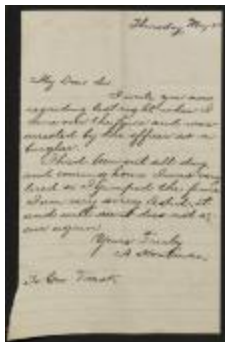 Thursday May
My Dear Sir
I write you now
regarding last night when I
came over the fence and was
arrested by the officer as a
burglar.
I had been out all day
and coming home I was very
tired so I jumped the fence
I am very sorry I did it
and will see it does not
occur again.
Yours Truly
A
To Geo